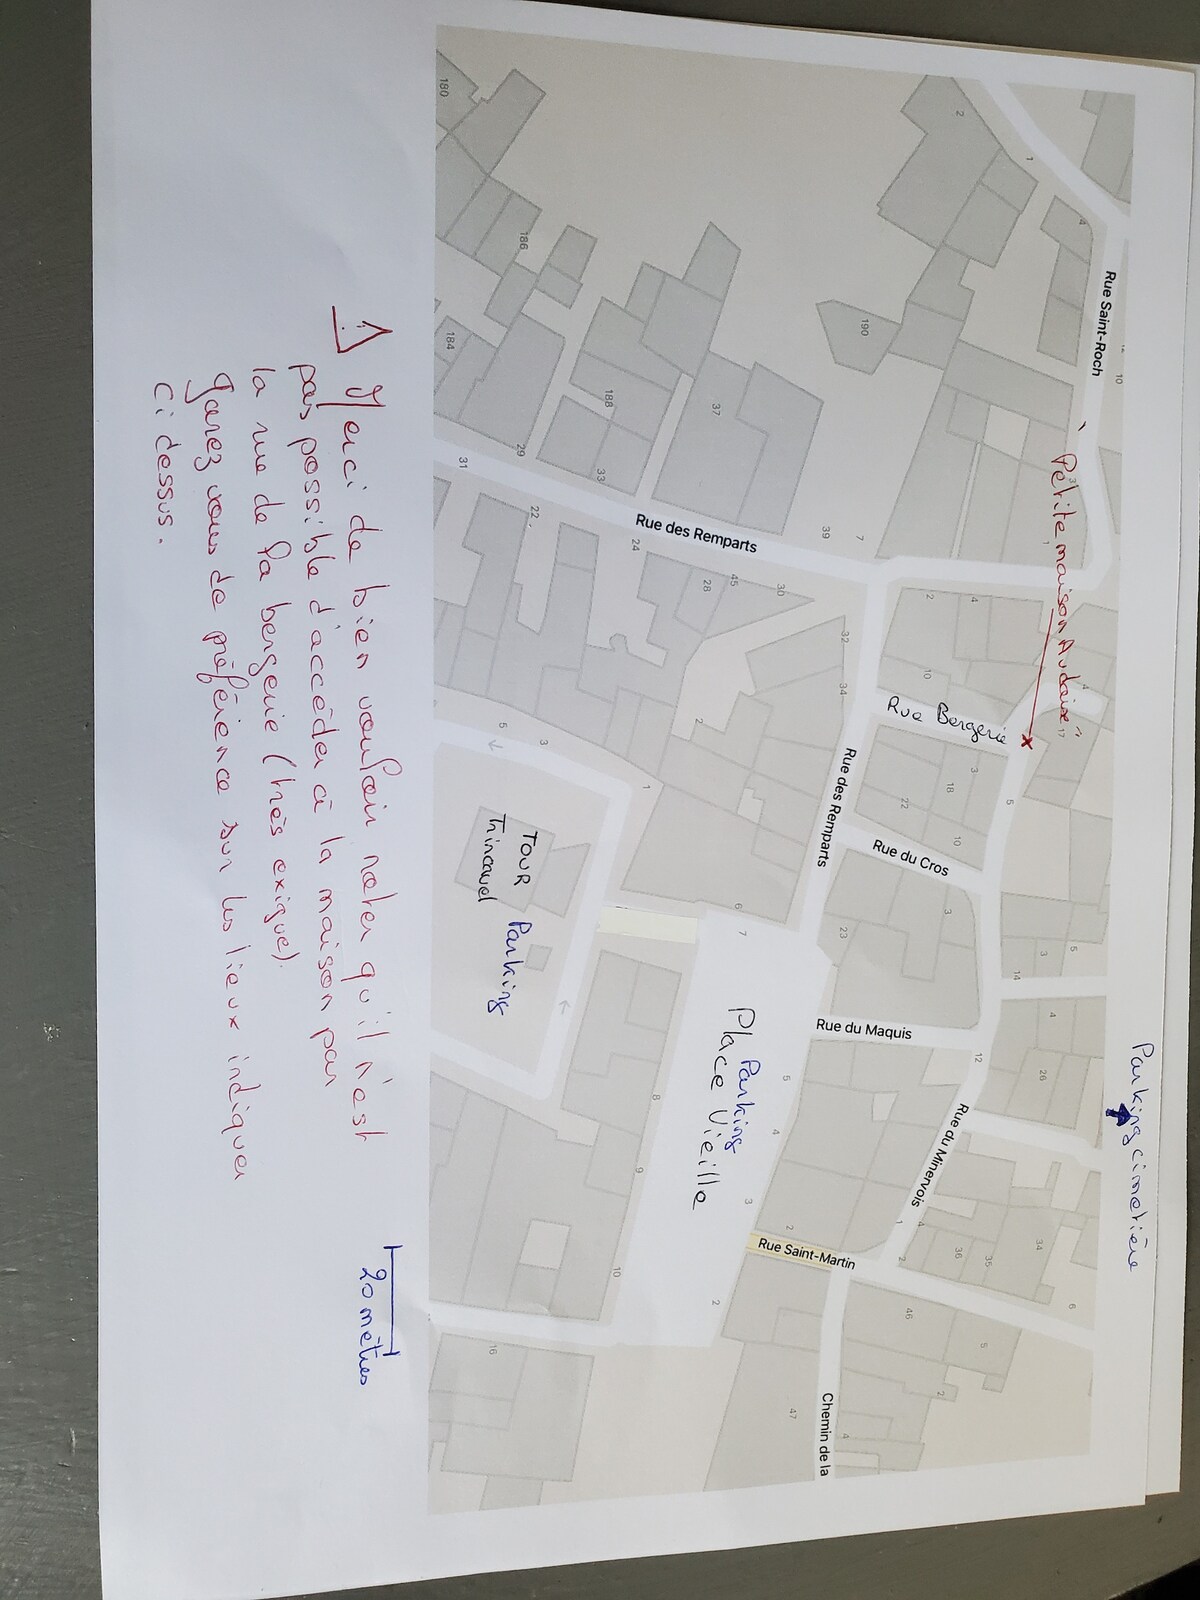 Parking cimetière
Rue Saint-Roch
"Petite maison Audoise"
Rue Bergerie
Rue du Cros
Rue du Minervois
Rue du Maquis
Rue Saint-Martin
Chemin de la
Rue des Remparts
Rue des Remparts
Parking
Place Vieille
TOUR Parking
Trincavel
180
186
184
188
190
37
29
33
31
39
7
22
24
28
45
30
32
34
2
1
4
10
3
1
2
4
10
17
5
3
18
22
10
3
23
14
3
5
4
26
12
5
3
1
6
7
5
4
3
2
2
8
9
10
16
1
4
2
36
35
34
6
46
5
2
47
4
20 mètres
⚠ Merci de bien vouloir noter qu'il n'est
pas possible d'accéder à la maison par
la rue de la bergerie (très exigue).
garez vous de préférence sur les lieux indiquer
ci dessus.